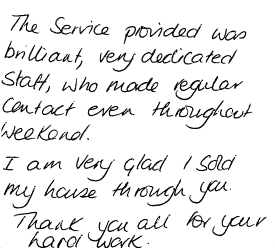 The Service provided was
brilliant, very dedicated
Staff, who made regular
Contact even throughout
Weekend.
I am very glad I sold
my house through you.
Thank you all for your
hard work.